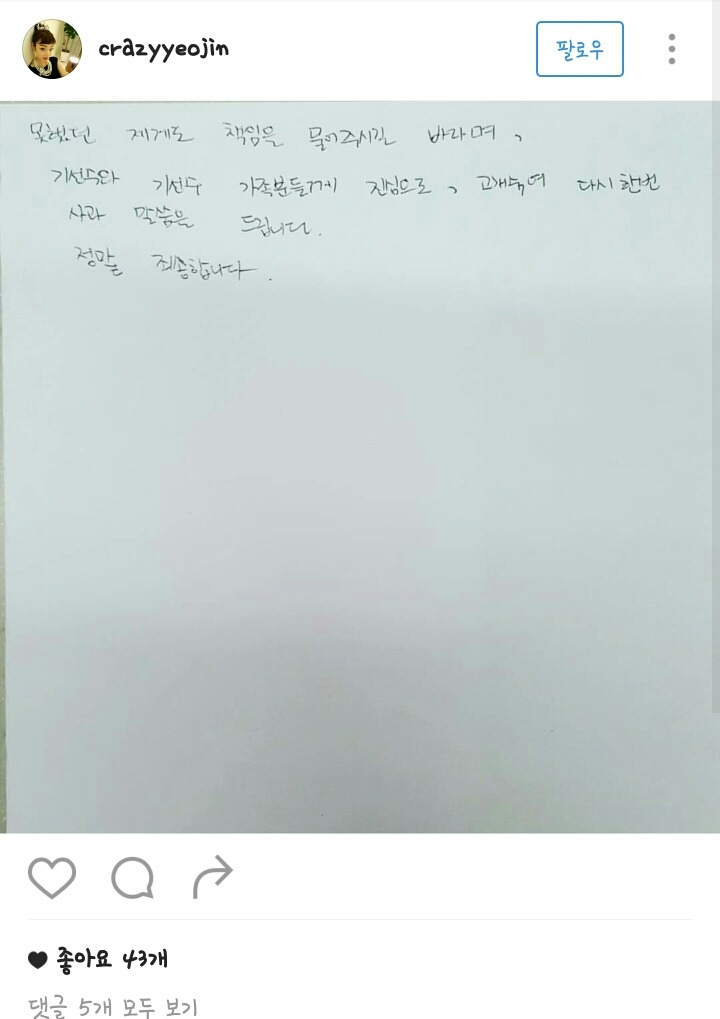 crazyyeojin
팔로우
못했던 제게도 책임을 물어주시길 바라며,
기선수와 기선수 가족분들께 진심으로, 고개숙여 다시한번
사과 말씀을 드립니다.
정말 죄송합니다.
좋아요 43개
댓글 5개 모두 보기